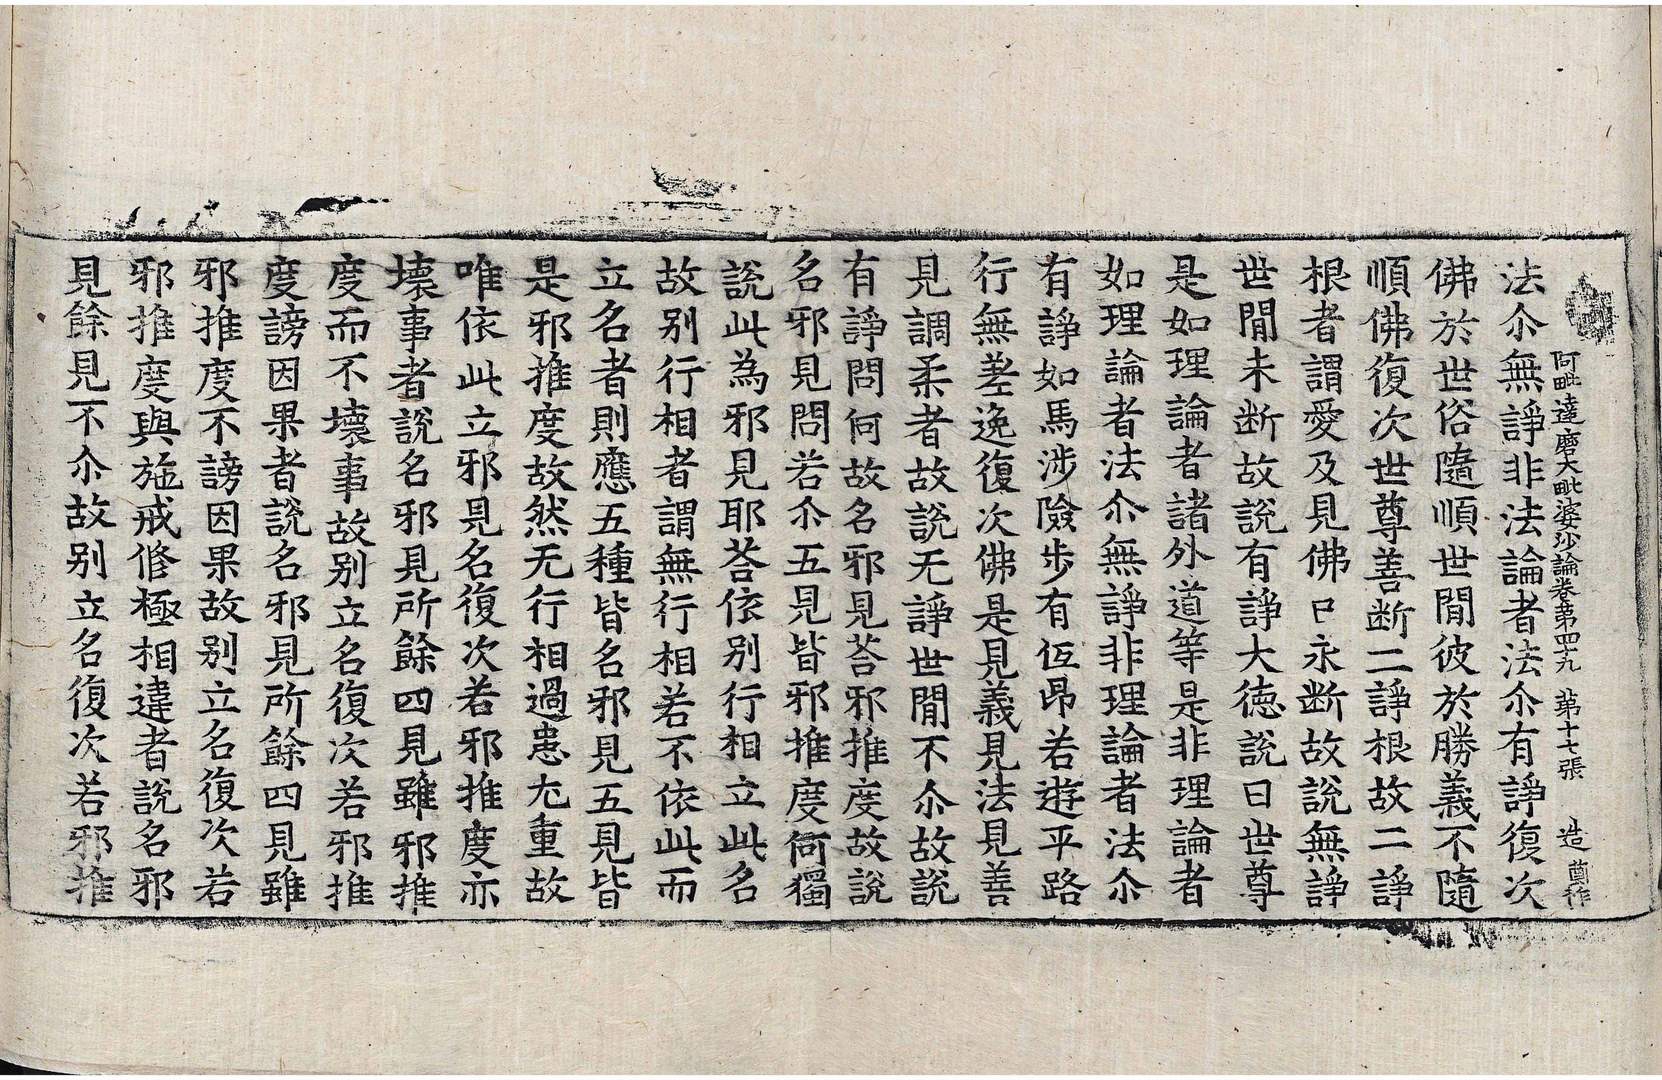 阿毗達磨大毗婆沙論卷第四十九 第十七張 造 酋作
法尒無諍非法論者法尒有諍復次
佛於世俗隨順世閒彼於勝義不隨
順佛復次世尊善断二諍根故二諍
根者謂愛及見佛已永断故說無諍
世閒未断故說有諍大徳說曰世尊
是如理論者諸外道等是非理論者
如理論者法尒無諍非理論者法尒
有諍如馬涉險步有伍昂若遊平路
行無差逸復次佛是見義見法見善
見調柔者故說无諍世閒不尒故說
有諍問何故名邪見荅邪推度故說
名邪見問若尒五見皆邪推度何獨
說此為邪見耶荅依别行相立此名
故别行相者謂無行相若不依此而
立名者則應五種皆名邪見五見皆
是邪推度故然无行相過患尤重故
唯依此立邪見名復次若邪推度亦
壞事者說名邪見所餘四見雖邪推
度而不壞事故别立名復次若邪推
度謗因果者說名邪見所餘四見雖
邪推度不謗因果故别立名復次若
邪推度與施戒修極相違者說名邪
見餘見不尒故别立名復次若邪推